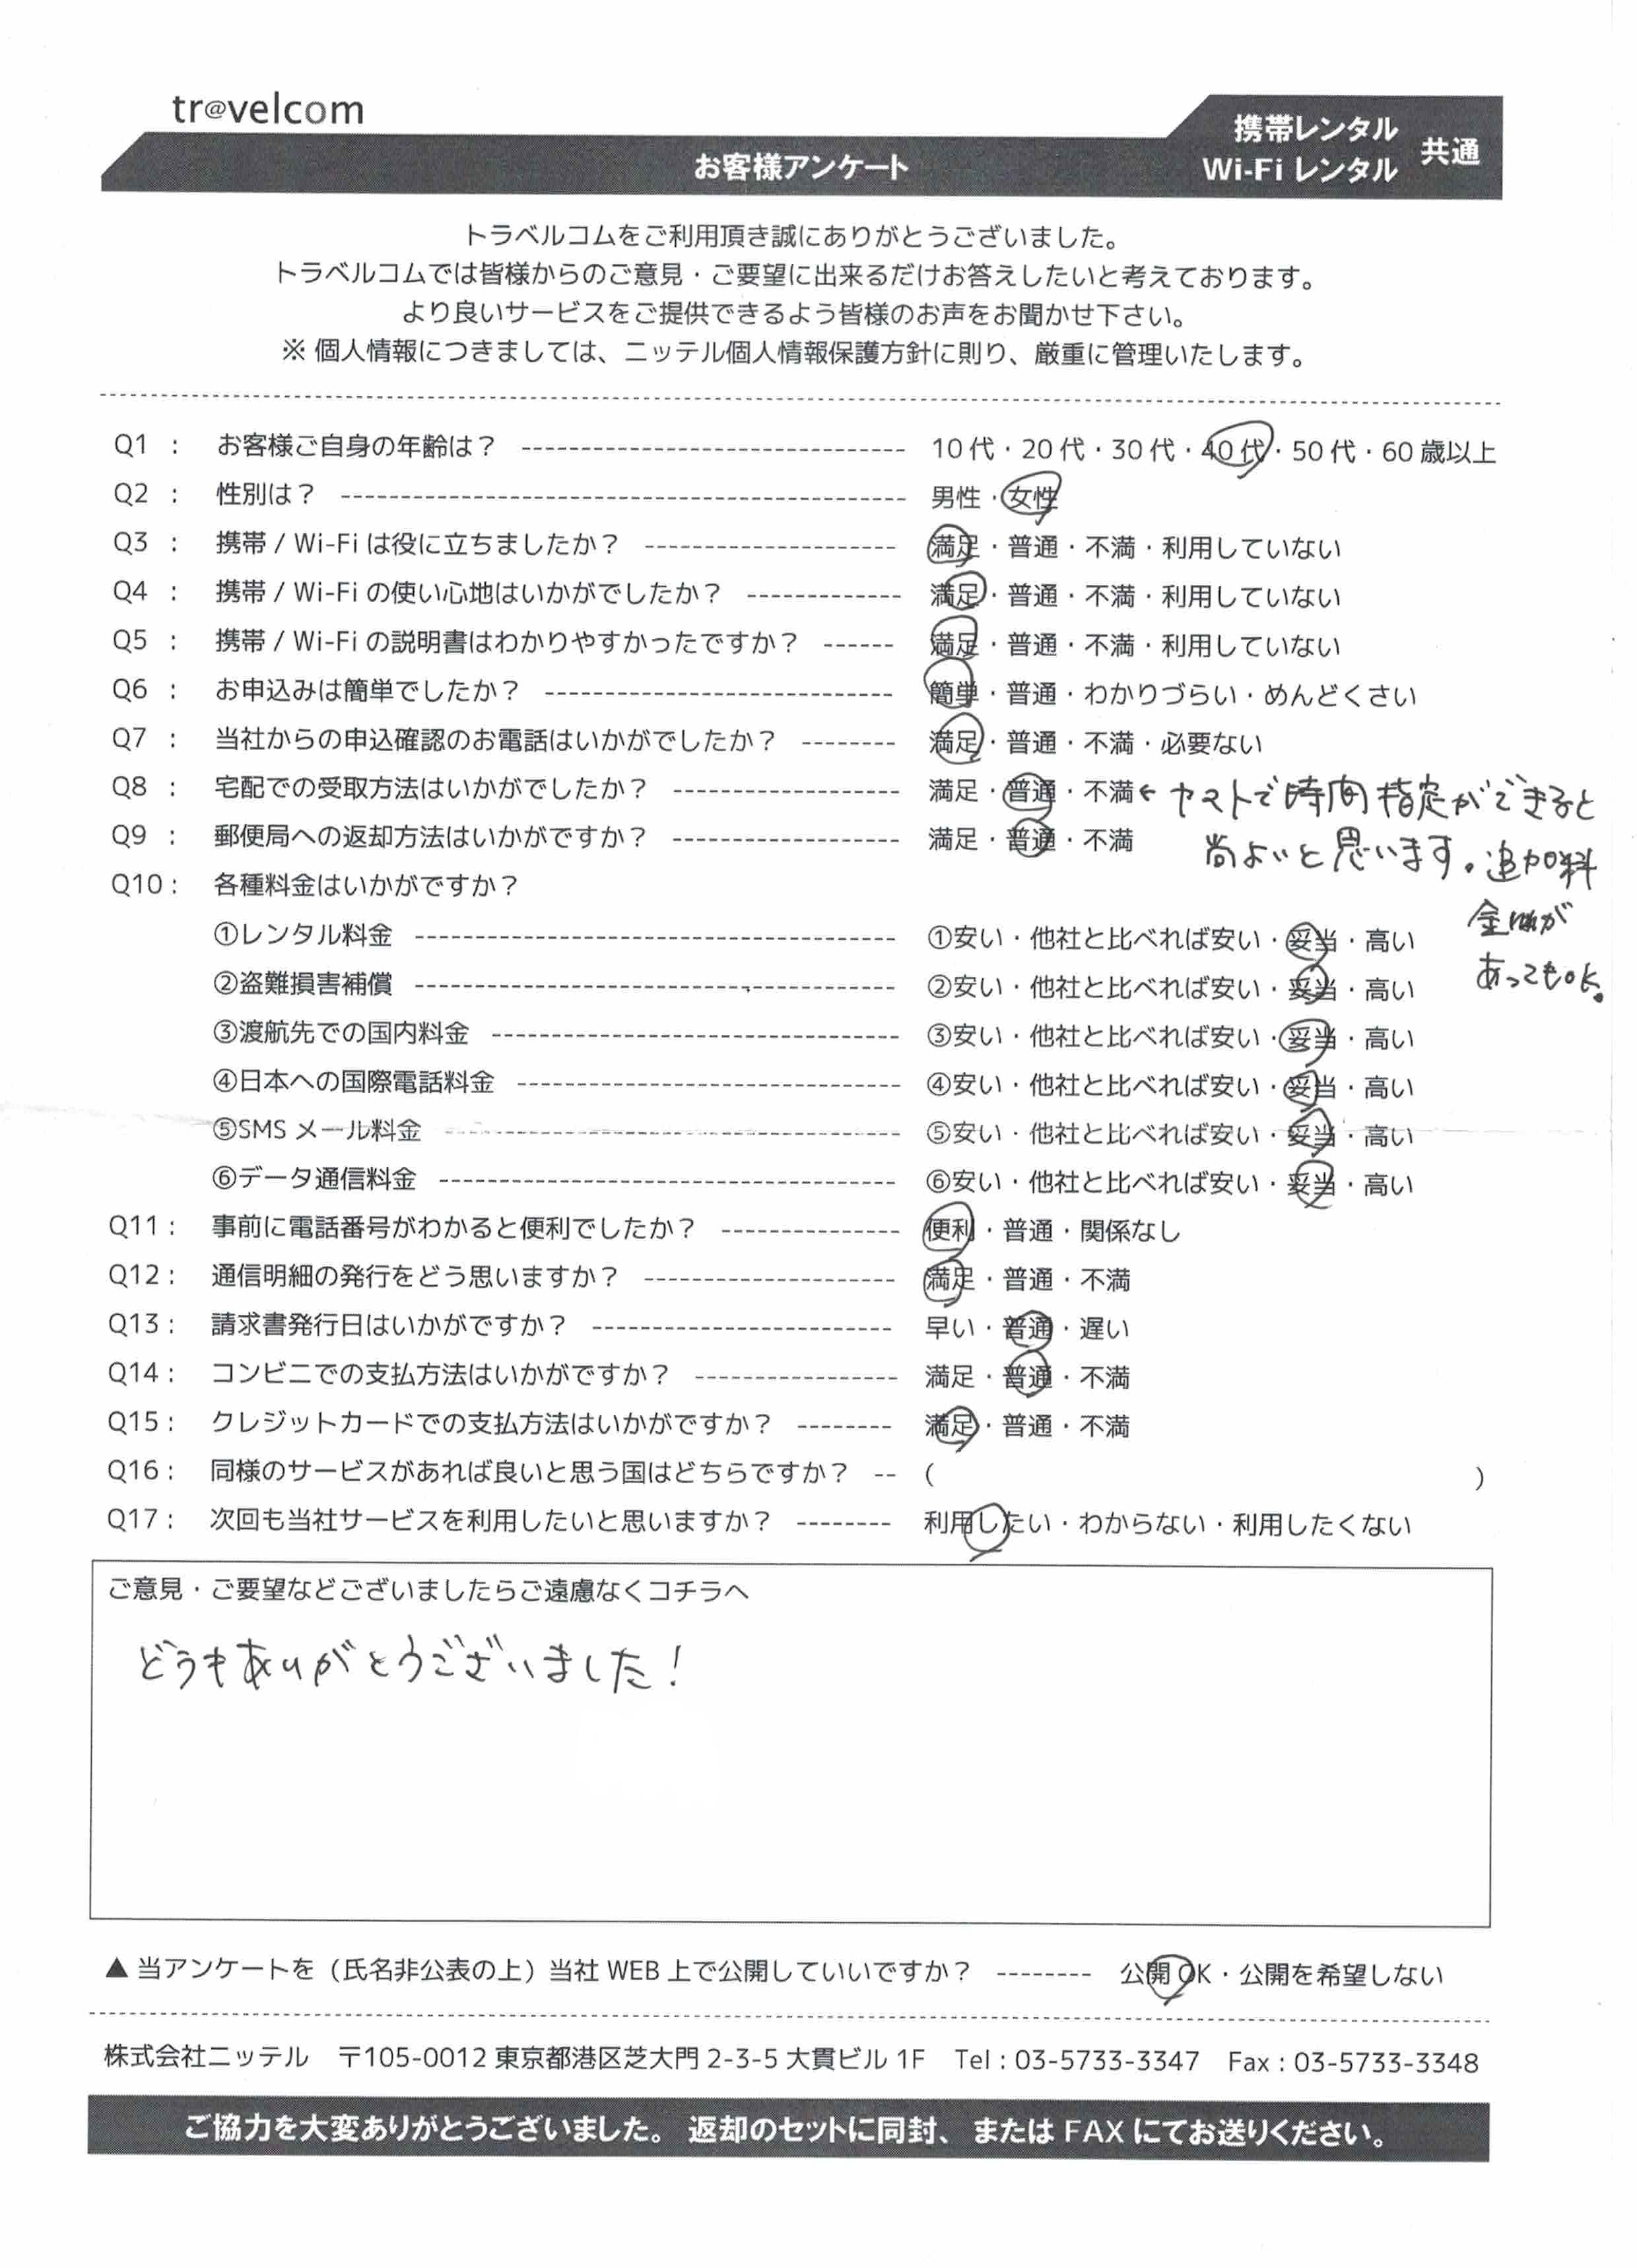 tr@velcom
お客様アンケート
携帯レンタル
Wi-Fi レンタル
共通
トラベルコムをご利用頂き誠にありがとうございました。
トラベルコムでは皆様からのご意見・ご要望に出来るだけお答えしたいと考えております。
より良いサービスをご提供できるよう皆様のお声をお聞かせ下さい。
※ 個人情報につきましては、ニッテル個人情報保護方針に則り、厳重に管理いたします。
Q1 : お客様ご自身の年齢は? 10代・20代・30代・40代・50代・60歳以上
Q2 : 性別は? 男性・女性
Q3 : 携帯 / Wi-Fi は役に立ちましたか? 満足・普通・不満・利用していない
Q4 : 携帯 / Wi-Fi の使い心地はいかがでしたか? 満足・普通・不満・利用していない
Q5 : 携帯 / Wi-Fi の説明書はわかりやすかったですか? 満足・普通・不満・利用していない
Q6 : お申込みは簡単でしたか? 簡単・普通・わかりづらい・めんどくさい
Q7 : 当社からの申込確認のお電話はいかがでしたか? 満足・普通・不満・必要ない
Q8 : 宅配での受取方法はいかがでしたか? 満足・普通・不満 ← ヤマトで時間指定ができると
Q9 : 郵便局への返却方法はいかがですか? 満足・普通・不満 尚よいと思います。追加料
Q10 : 各種料金はいかがですか?
金が
①レンタル料金 ①安い・他社と比べれば安い・妥当・高い
あってもOK。
②盗難損害補償 ②安い・他社と比べれば安い・妥当・高い
③渡航先での国内料金 ③安い・他社と比べれば安い・妥当・高い
④日本への国際電話料金 ④安い・他社と比べれば安い・妥当・高い
⑤SMS メール料金 ⑤安い・他社と比べれば安い・妥当・高い
⑥データ通信料金 ⑥安い・他社と比べれば安い・妥当・高い
Q11 : 事前に電話番号がわかると便利でしたか? 便利・普通・関係なし
Q12 : 通信明細の発行をどう思いますか? 満足・普通・不満
Q13 : 請求書発行日はいかがですか? 早い・普通・遅い
Q14 : コンビニでの支払方法はいかがですか? 満足・普通・不満
Q15 : クレジットカードでの支払方法はいかがですか? 満足・普通・不満
Q16 : 同様のサービスがあれば良いと思う国はどちらですか? ( )
Q17 : 次回も当社サービスを利用したいと思いますか? 利用したい・わからない・利用したくない
ご意見・ご要望などございましたらご遠慮なくコチラへ
どうもありがとうございました!
▲ 当アンケートを(氏名非公表の上)当社 WEB 上で公開していいですか? 公開 OK・公開を希望しない
株式会社ニッテル 〒105-0012 東京都港区芝大門 2-3-5 大貫ビル 1F Tel : 03-5733-3347 Fax : 03-5733-3348
ご協力を大変ありがとうございました。 返却のセットに同封、または FAX にてお送りください。